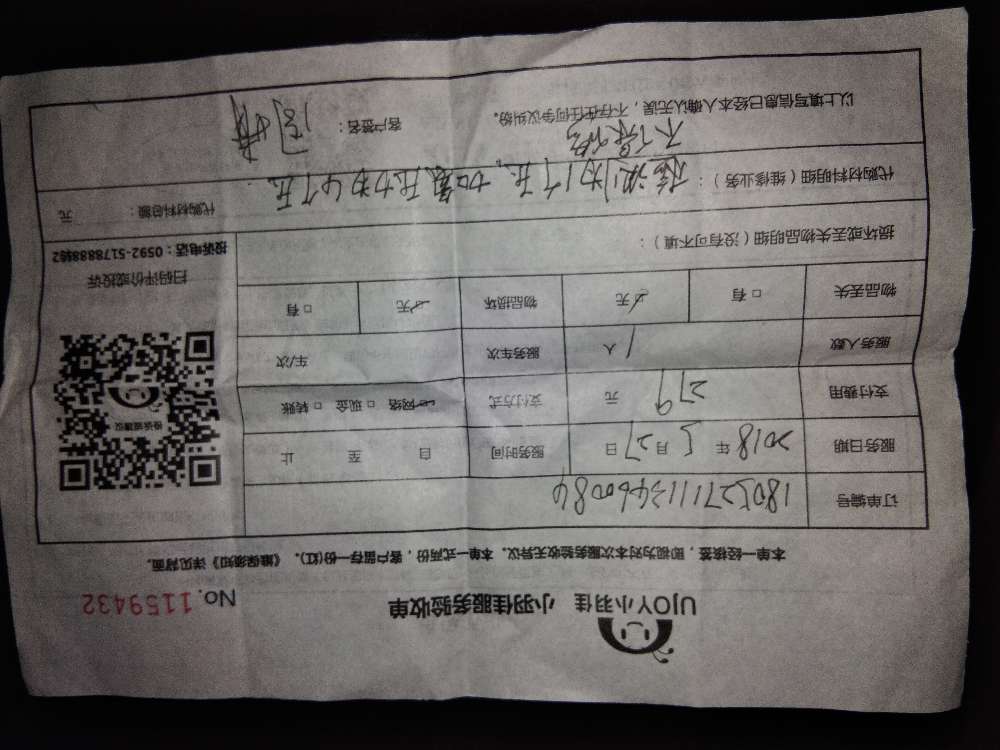 UJOY小羽佳 小羽佳服务验收单
No. 1159432
本单一经核签，即视为对本次服务验收无异议。本单一式两份，客户留存一份(红)。《服保须知》详见背面。
订单编号
服务日期 2018 年 5 月 27 日 服务时间 自 至 止
支付费用 279 元 支付方式 ☑网络 □现金 □转账
服务人数 1 人 服务车次 车/次
物品丢失 □有 ☑无 物品损坏 ☑无 □有
损坏或丢失物品明细（没有可不填）：
扫码评价或投诉
投诉电话：0592-5178888转2
代购材料明细（维修业务）： 检测为1个压，加氟压力为4个压
不保修
代购材料总额： 元
以上填写信息已经本人确认无误，不存在任何争议纠纷。 客户签名：